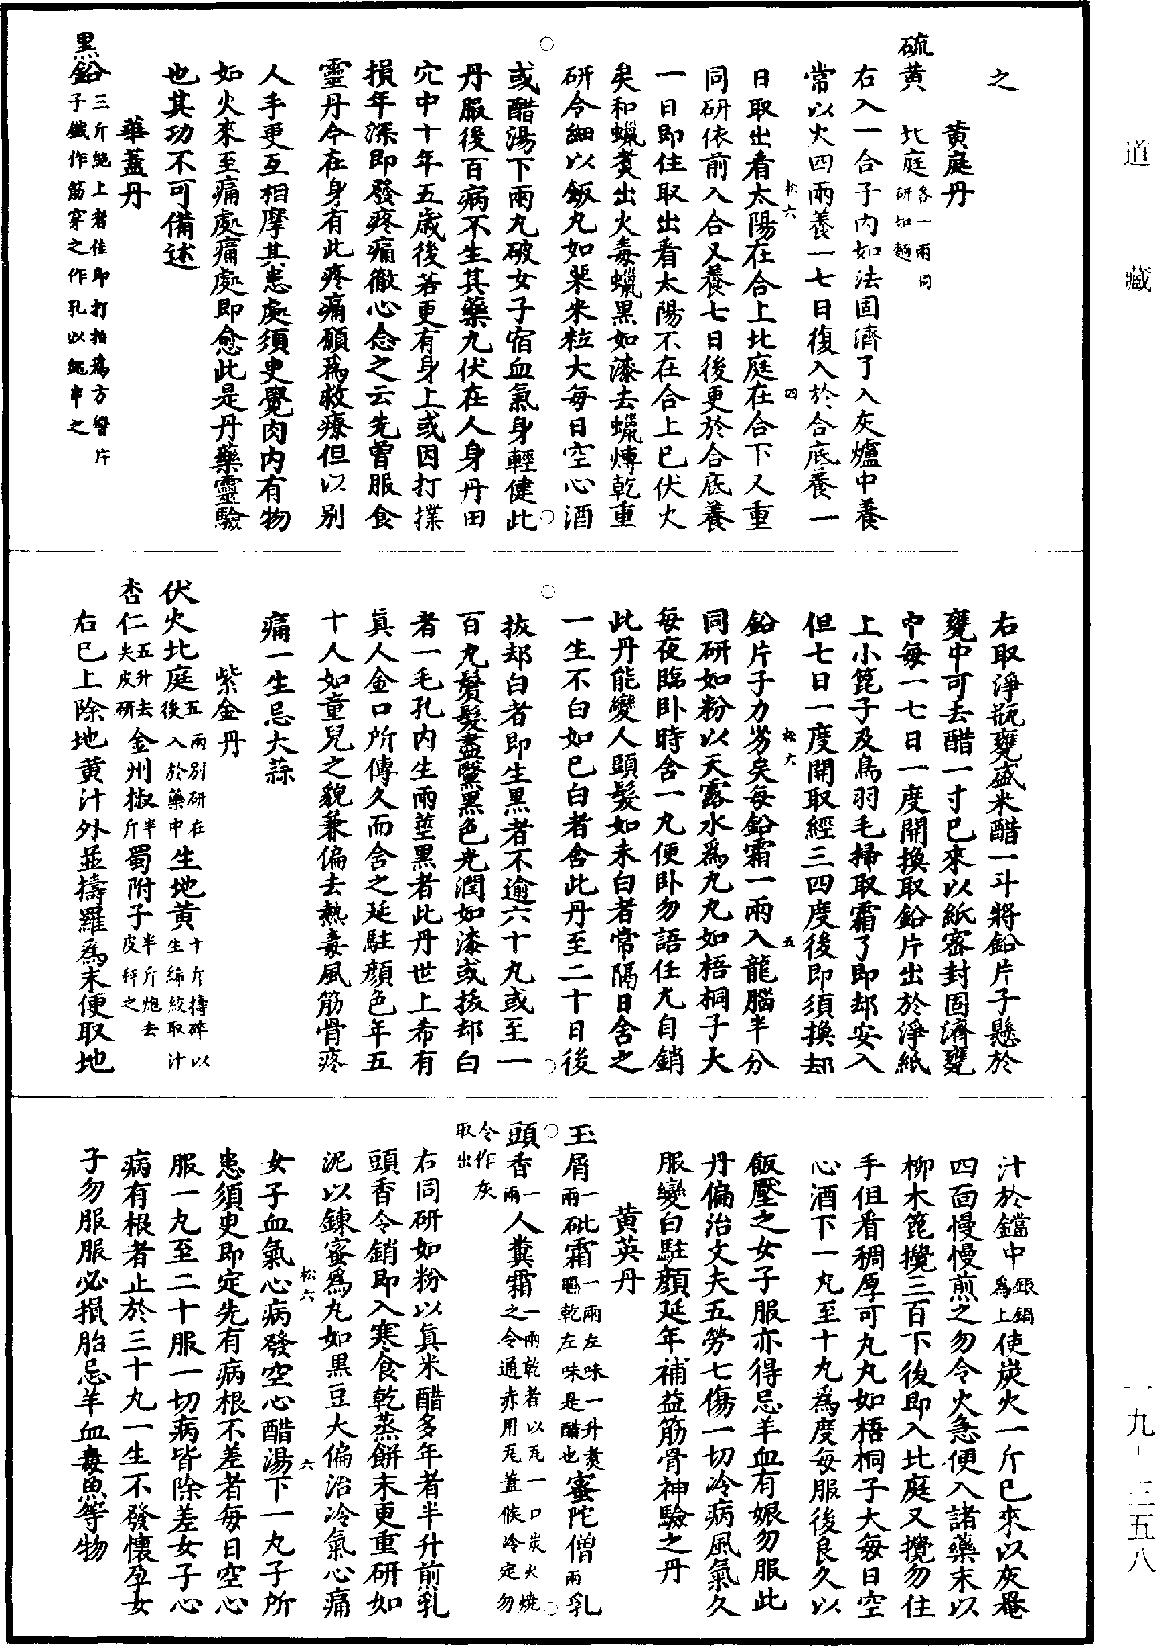 道藏
之
黃庭丹
硫黃 北庭各一兩同研如麵
右入一合子內如法固濟了入灰爐中養
常以火四兩養一七日復入於合底養一
日取出看太陽在合上北庭在合下又重
同研依前入合又養七日後更於合底養
一日即住取出看太陽不在合上已伏火
矣和蠟煑出火毒蠟黑如漆去蠟煿乾重
研令細以飯丸如粟米粒大每日空心酒
或醋湯下兩丸破女子宿血氣身輕健此
丹服後百病不生其藥丸伏在人身丹田
穴中十年五歲後若更有身上或因打撲
損年深即發疼痛徹心念之云先曾服食
靈丹今在身有此疼痛願爲救療但以別
人手更互相摩其患處須臾覺肉內有物
如火來至痛處痛處即愈此是丹藥靈驗
也其功不可備述
華蓋丹
黑鉛三斤絕上者佳即打拍爲方響片子鐵作筋穿之作孔以繩串之
松六 四
右取淨瓶甕盛米醋一斗將鉛片子懸於
甕中可去醋一寸已來以紙密封固濟甕
中每一七日一度開換取鉛片出於淨紙
上小篦子及鳥羽毛掃取霜了即却安入
但七日一度開取經三四度後即須換却
鉛片子力劣矣每鉛霜一兩入龍腦半分
同研如粉以天露水爲丸丸如梧桐子大
每夜臨臥時含一丸便臥勿語任尢自銷
此丹能變人頭髮如未白者常隔日含之
一生不白如已白者含此丹至二十日後
拔却白者即生黑者不逾六十丸或至一
百丸鬢髮盡鬒黑色光潤如漆或拔却白
者一毛孔內生兩莖黑者此丹世上希有
真人金口所傳久而含之延駐顏色年五
十人如童兒之貌兼偏去熱毒風筋骨疼
痛一生忌大蒜
紫金丹
伏火北庭五兩別研在後入於藥中生地黃十斤擣碎以生綿絞取汁
杏仁五升去尖皮研金州椒半斤蜀附子半斤炮去皮秤之
右已上除地黃汁外並擣羅爲末便取地
松六 五
汁於鐺中銀鍋爲上使炭火一斤已來以灰罨
四面慢慢煎之勿令火急便入諸藥末以
柳木篦攪三百下後即入北庭又攪勿住
手但看稠厚可丸丸如梧桐子大每日空
心酒下一丸至十丸爲度每服後良久以
飯壓之女子服亦得忌羊血有娠勿服此
丹偏治丈夫五勞七傷一切冷病風氣久
服變白駐顏延年補益筋骨神驗之丹
黃英丹
玉屑一兩砒霜一兩左味一升煑乾左味是醋也蜜陀僧一兩乳
頭香一兩人糞霜一兩乾者以瓦一口炭火燒之令通赤用瓦蓋候冷定勿
令作灰取出
右同研如粉以真米醋多年者半升煎乳
頭香令銷即入寒食乾蒸餅末更重研如
泥以鍊蜜爲丸如黑豆大偏治冷氣心痛
女子血氣心病發空心醋湯下一丸子所
患須臾即定先有病根不差者每日空心
服一丸至二十服一切病皆除差女子心
病有根者止於三十丸一生不發懷孕女
子勿服服必損胎忌羊血毒魚等物
松六 六
一九-三五八